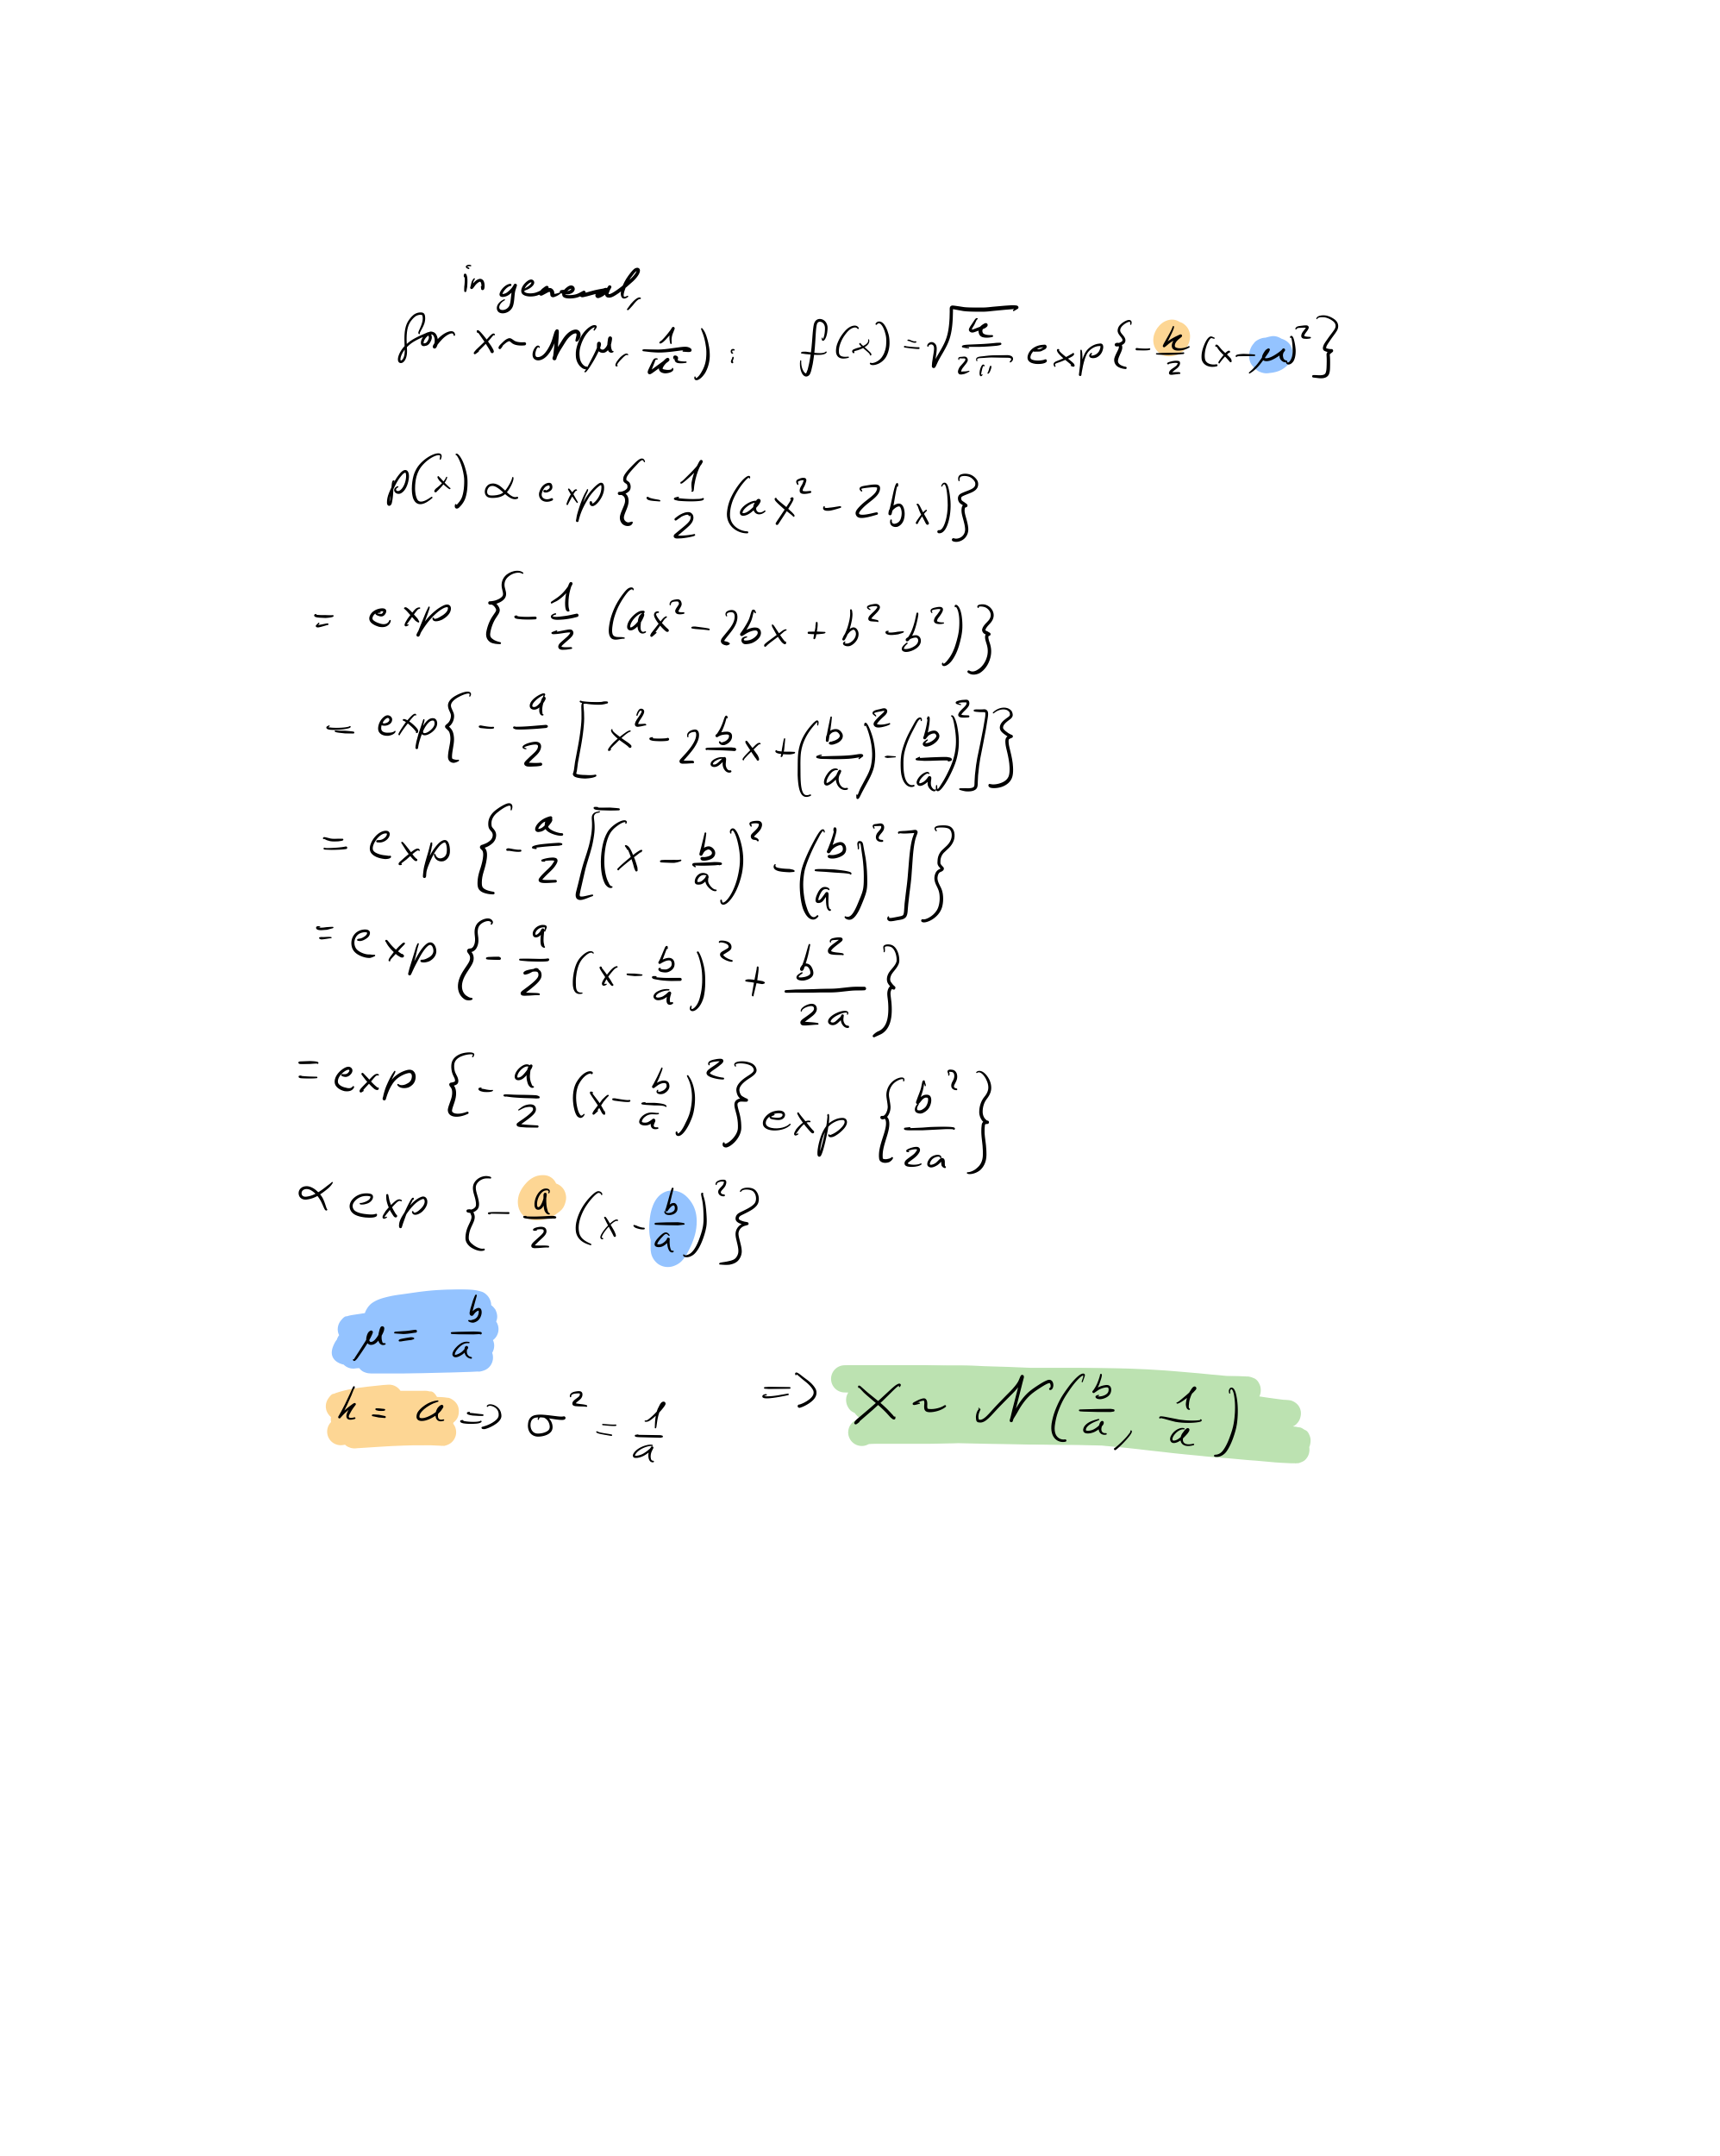 in general,
for x~N(μ, 1/k): f(x) = √(k/2π) exp{-k/2 (x-μ)²}
p(x) ∝ exp{-1/2 (ax² - 2bx)}
= exp {-1/2 (ax² - 2bx + b² - b²)}
= exp{- a/2 [x² - 2 b/a x + (b/a)² - (b/a)²]}
= exp {- a/2 [(x - b/a)² - (b/a)²]}
= exp {- a/2 (x - b/a)² + b²/2a}
= exp {- a/2 (x - b/a)²} exp {b²/2a}
∝ exp {- a/2 (x - b/a)²}
μ = b/a
k = a => σ² = 1/a => X ~ N(b/a, 1/a)